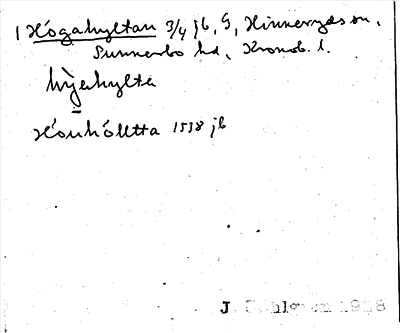 1 Högahyltan 3/4 jb, G, Hinneryds sn,
Sunnerbo hd, Kronob. l.
hø̀jahylta
Hönhölltta 1538 jb
J. 1928